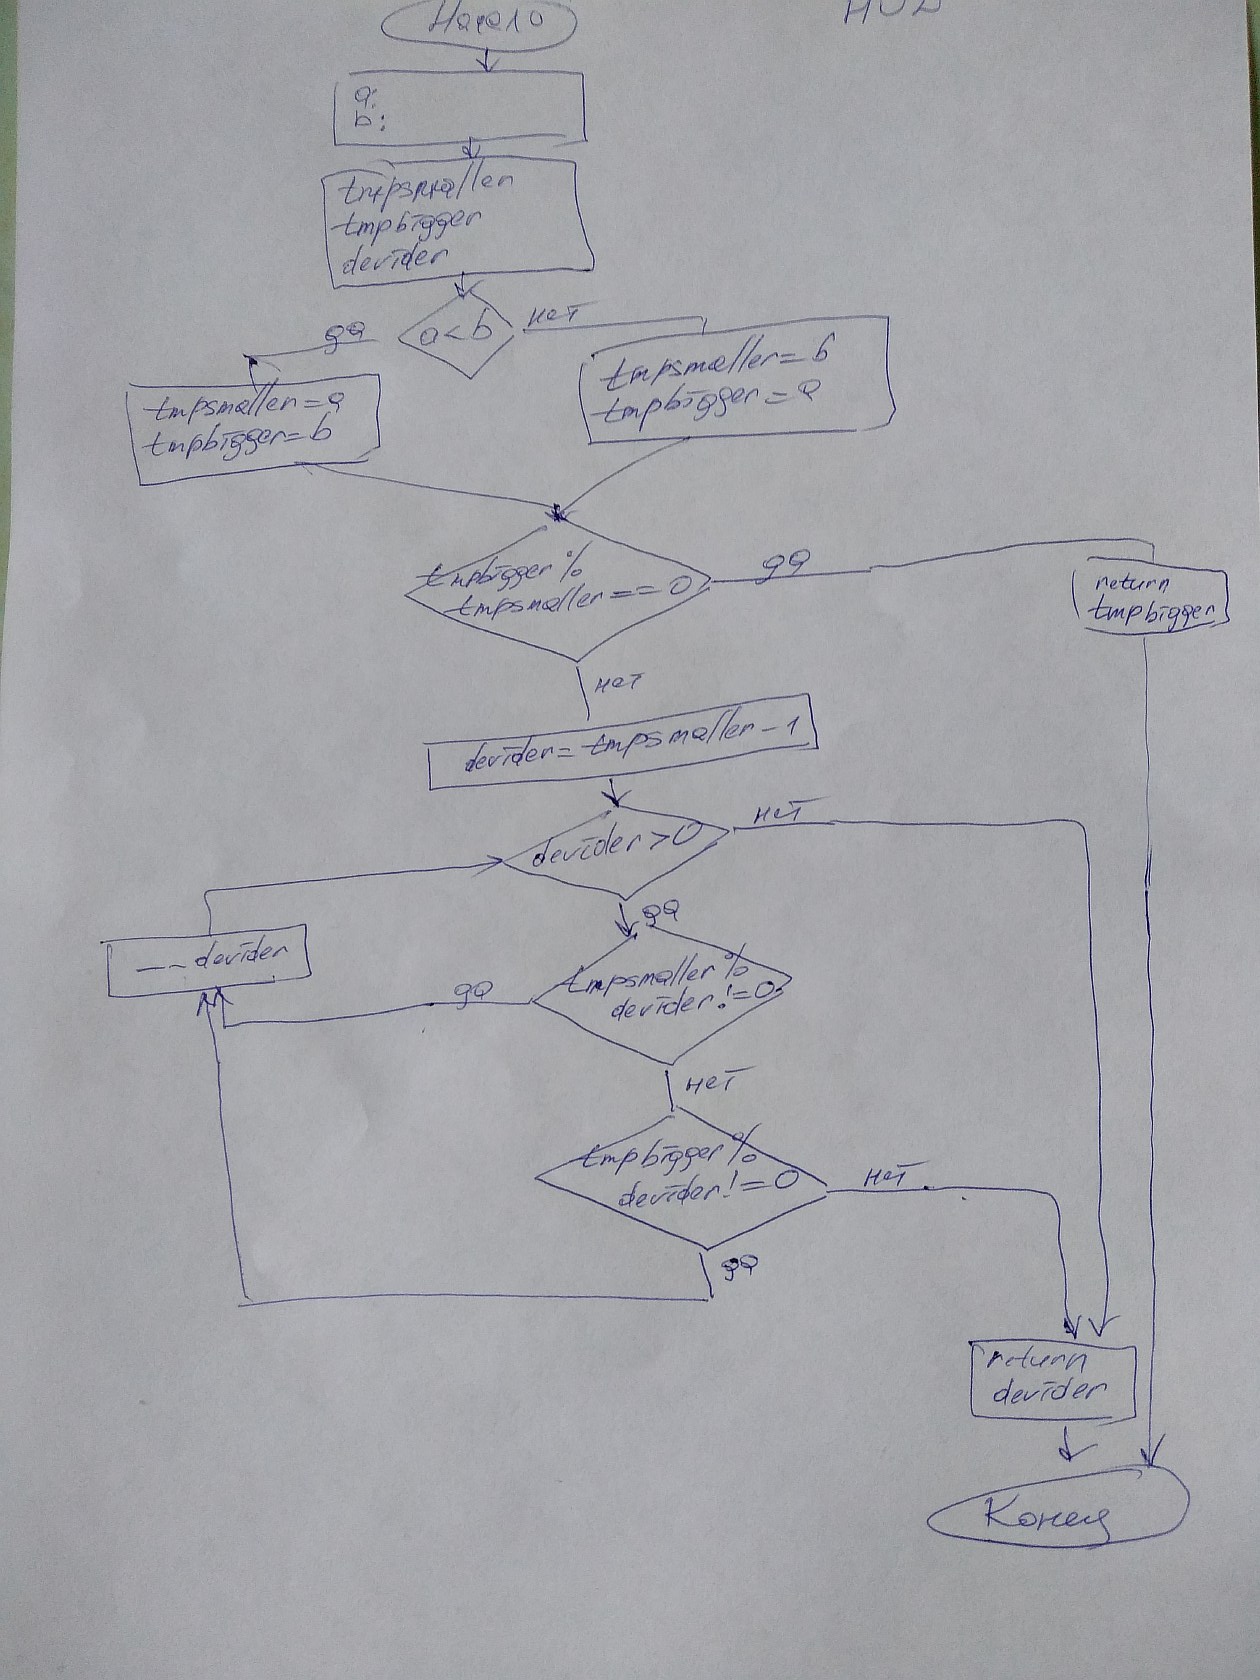 НОД
Начало
a;
b;
tmpsmaller
tmpbigger
devider
a<b
да
нет
tmpsmaller=a
tmpbigger=b
tmpsmaller=b
tmpbigger=a
tmpbigger%
tmpsmaller==0
да
return
tmpbigger
нет
devider=tmpsmaller-1
devider>0
нет
да
--devider
tmpsmaller%
devider!=0
да
нет
tmpbigger%
devider!=0
нет
да
return
devider
Конец